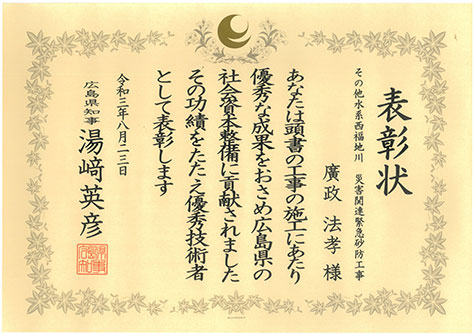 表彰状
その他水系西福地川 災害関連緊急砂防工事
廣政 法孝 様
あなたは頭書の工事の施工にあたり
優秀な成果をおさめ広島県の
社会資本整備に貢献されました
その功績をたたえ優秀技術者
として表彰します
令和三年八月二三日
広島県知事 湯﨑英彦